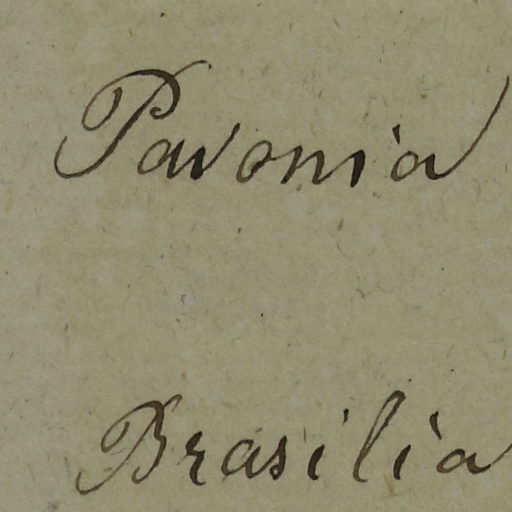 Pavonia
Brasilia